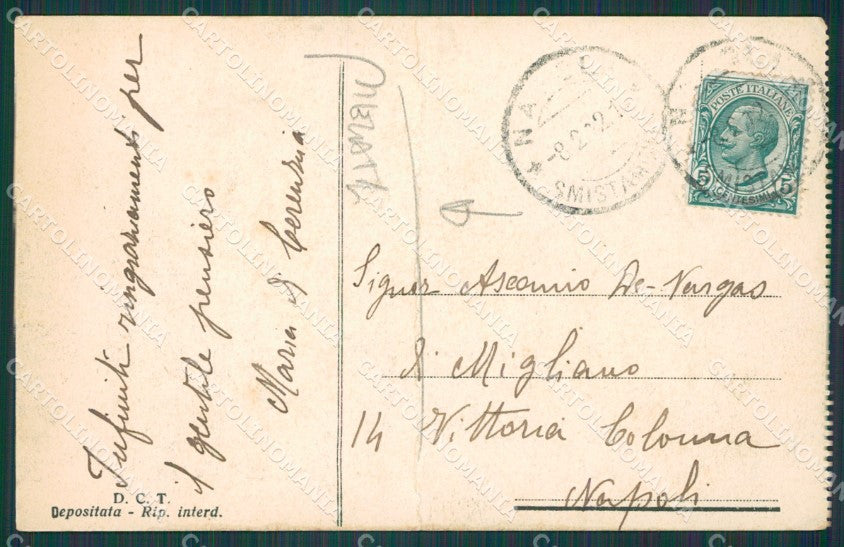 Infiniti ringraziamenti per
il gentile pensiero
Maria di
D. C. T.
Depositata - Rip. interd.
NA
8.2.22.1
SMISTAM
POSTE ITALIANE
5 CENTESIMI 5
Signor Ascanio De-Vargas
di Migliano
14 Vittoria Colonna
Napoli
CARTOLINOMANIA